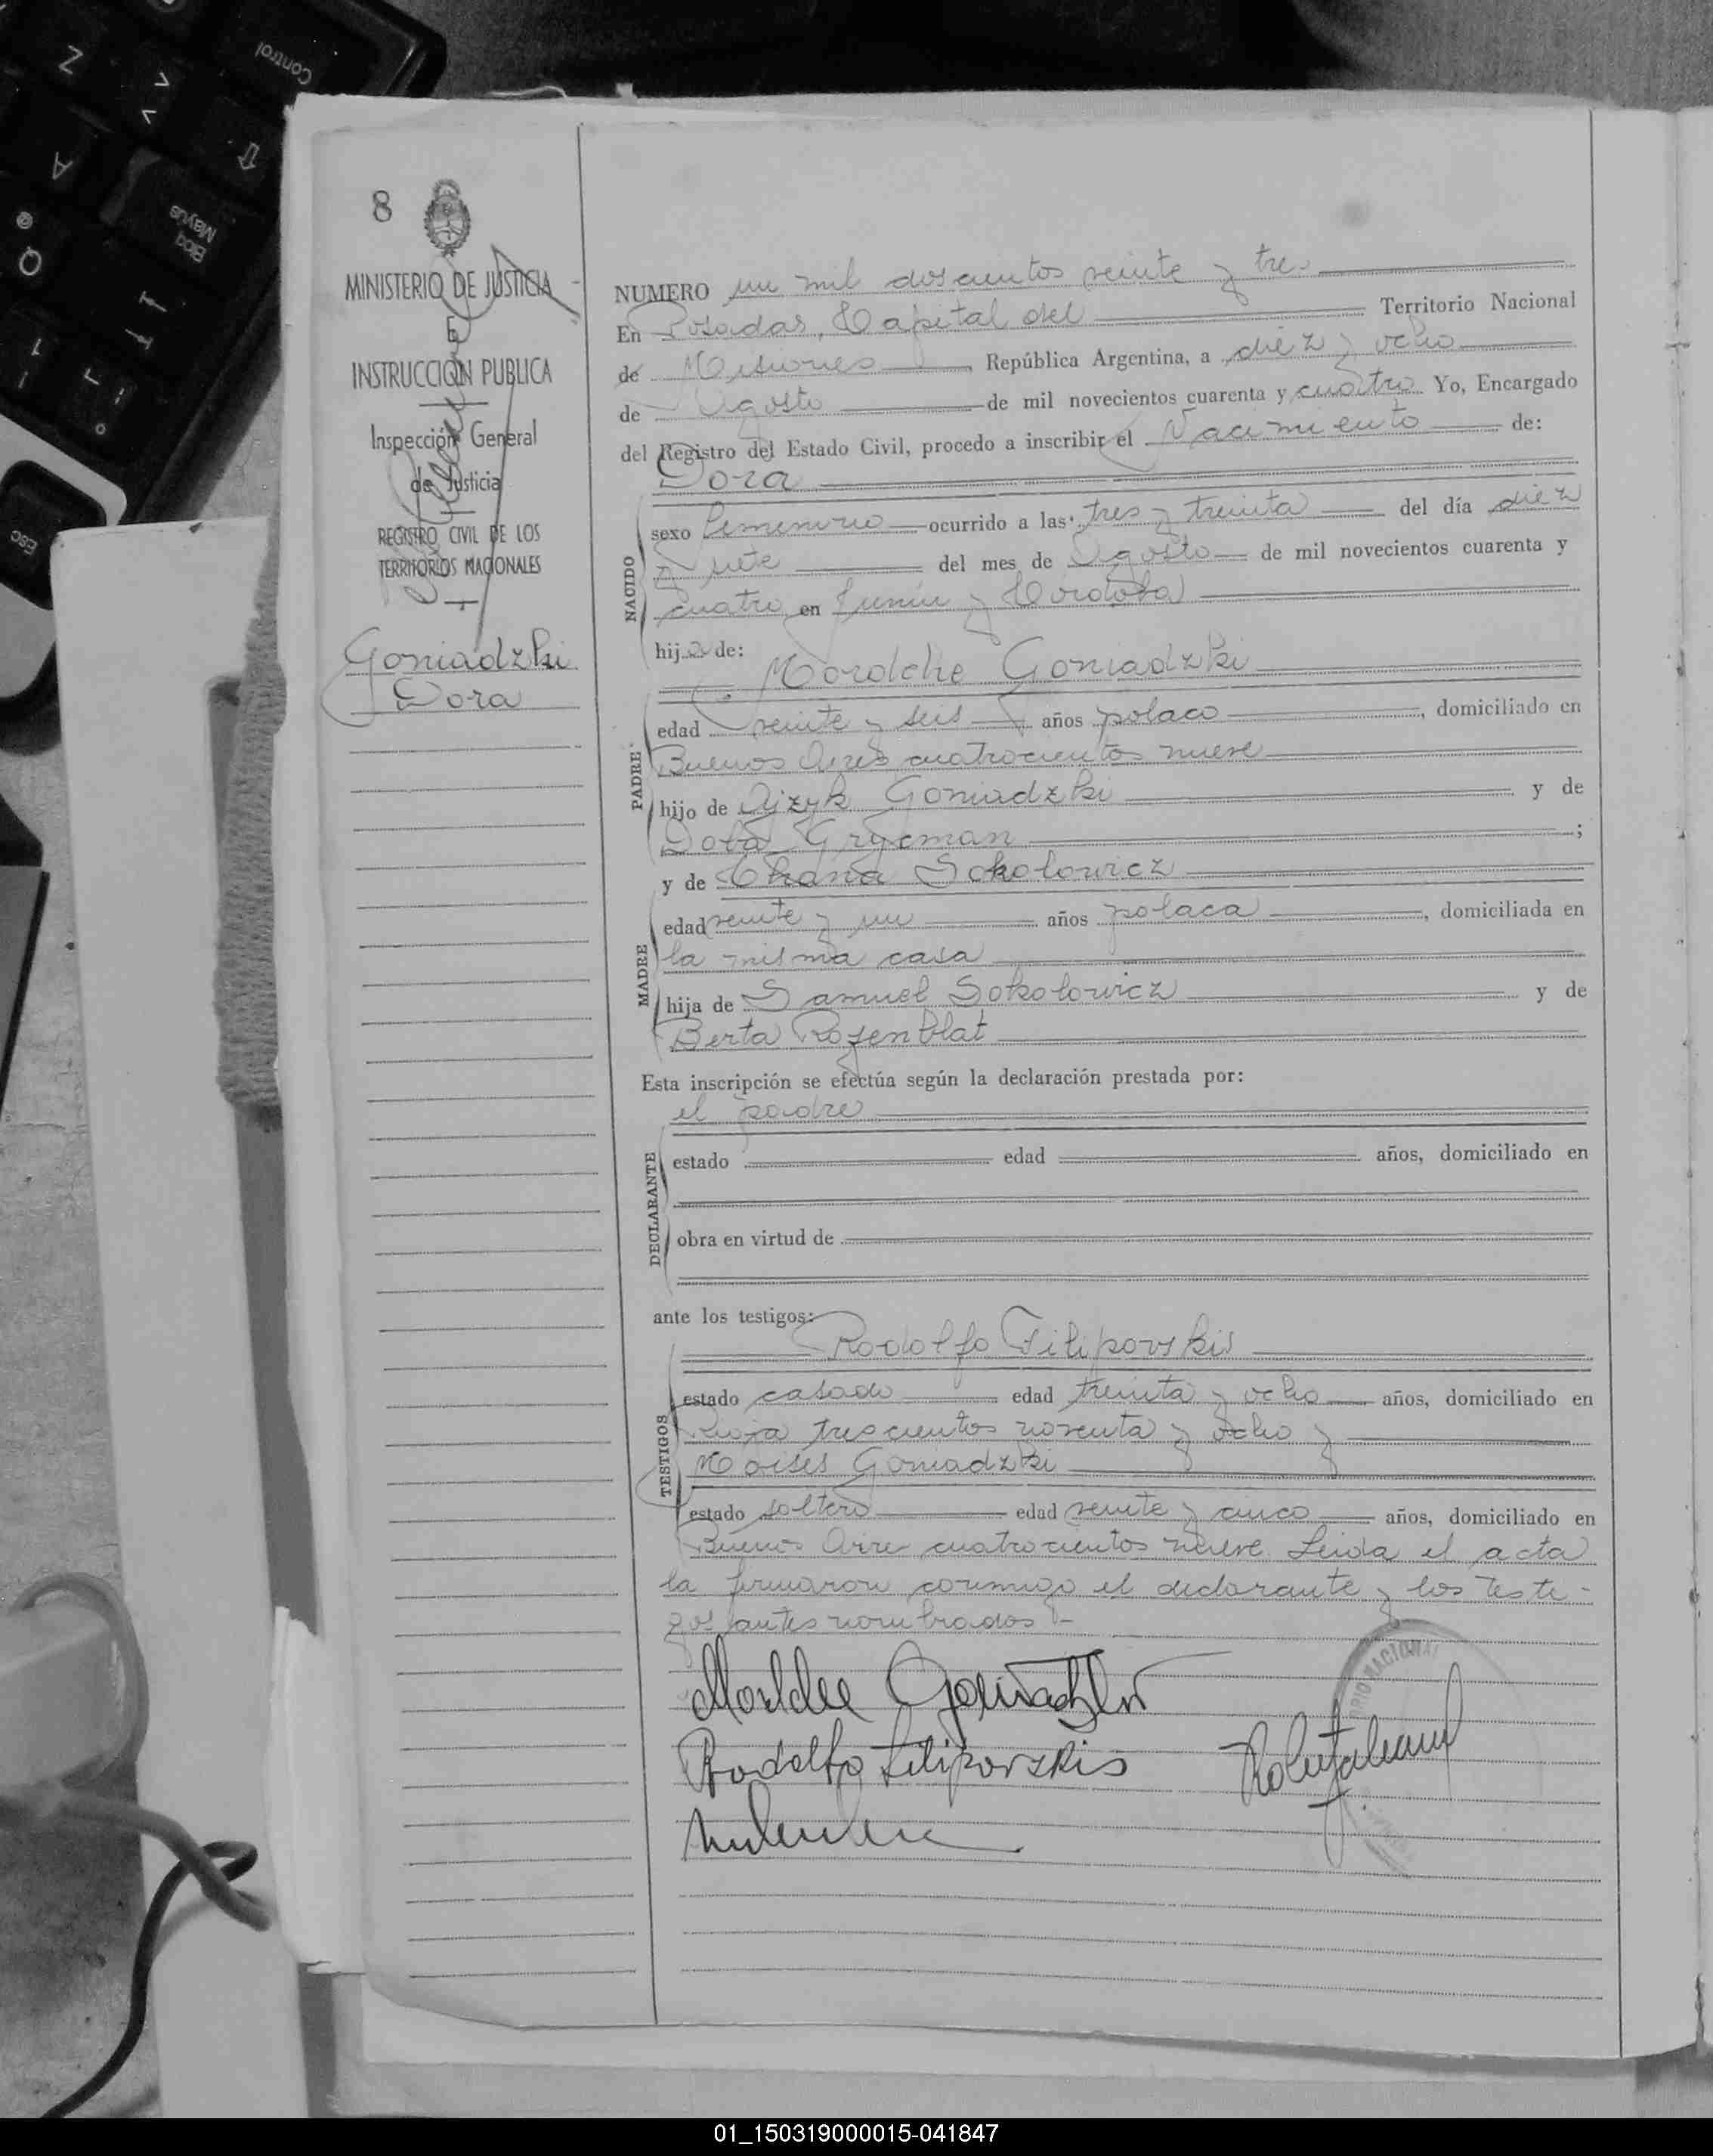 Control
Z
A
Bloq
Mayus
Q
Esc
8
MINISTERIO DE JUSTICIA
E
INSTRUCCION PUBLICA
Inspección General
de Justicia
REGISTRO CIVIL DE LOS
TERRITORIOS NACIONALES
Goniadzki
Dora
NUMERO un mil doscientos veinte y tres
En Posadas, Capital del Territorio Nacional
de Misiones, República Argentina, a diez y ocho
de Agosto de mil novecientos cuarenta y cuatro Yo, Encargado
del Registro del Estado Civil, procedo a inscribir el Nacimiento de:
Dora
NACIDO
sexo femenino ocurrido a las tres y treinta del día diez
y siete del mes de Agosto de mil novecientos cuarenta y
cuatro en Junín y Córdoba
hija de:
Mordche Goniadzki
PADRE
edad veinte y seis años polaco, domiciliado en
Buenos Aires cuatrocientos nueve
hijo de Ajzyk Goniadzki y de
Doba Grycman;
y de Chana Sokolowicz
MADRE
edad veinte y un años polaca, domiciliada en
la misma casa
hija de Samuel Sokolowicz y de
Berta Rozenblat
Esta inscripción se efectúa según la declaración prestada por:
el padre
DECLARANTE
estado edad años, domiciliado en
obra en virtud de
ante los testigos:
Rodolfo Filipovskis
TESTIGOS
estado casado edad treinta y ocho años, domiciliado en
Rioja trescientos noventa y ocho y
Moises Goniadzki
estado soltero edad veinte y cinco años, domiciliado en
Buenos Aires cuatrocientos nueve. Leida el acta
la firmaron conmigo el declarante y los testi-
gos antes nombrados
Mordche Goniadzki
Rodolfo Filipovskis
01_150319000015-041847